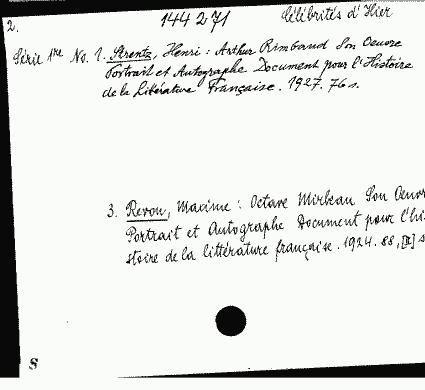 2. 144 271 Célébrités d'Hier
Série 1re No. 1. Strentz, Henri: Arthur Rimbaud Son Oeuvre
Portrait et Autographe Document pour l'Histoire
de la Littérature Française. 1927. 76 s.
3. Revon, Maxime: Octave Mirbeau Son Oeuvr
Portrait et Autographe Document pour l'hi-
stoire de la littérature française. 1924. 88, [II] s
S